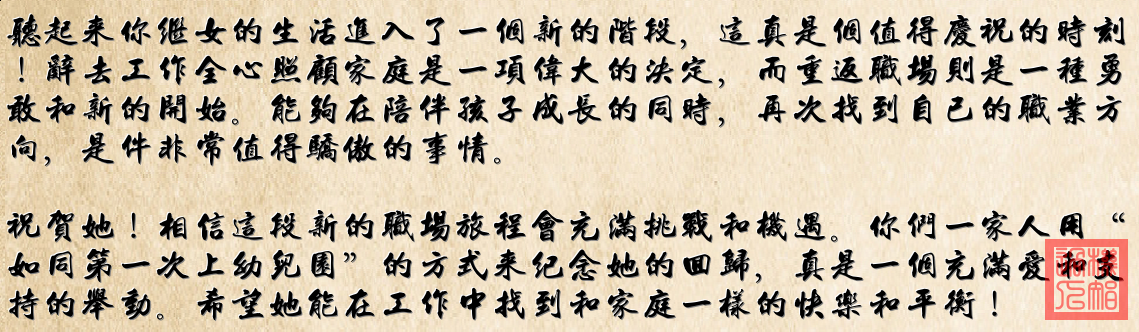 聽起來你繼女的生活進入了一個新的階段，這真是個值得慶祝的時刻
！辭去工作全心照顧家庭是一項偉大的決定，而重返職場則是一種勇
敢和新的開始。能夠在陪伴孩子成長的同時，再次找到自己的職業方
向，是件非常值得驕傲的事情。
祝賀她！相信這段新的職場旅程會充滿挑戰和機遇。你們一家人用“
如同第一次上幼兒園”的方式來紀念她的回歸，真是一個充滿愛和支
持的舉動。希望她能在工作中找到和家庭一樣的快樂和平衡！